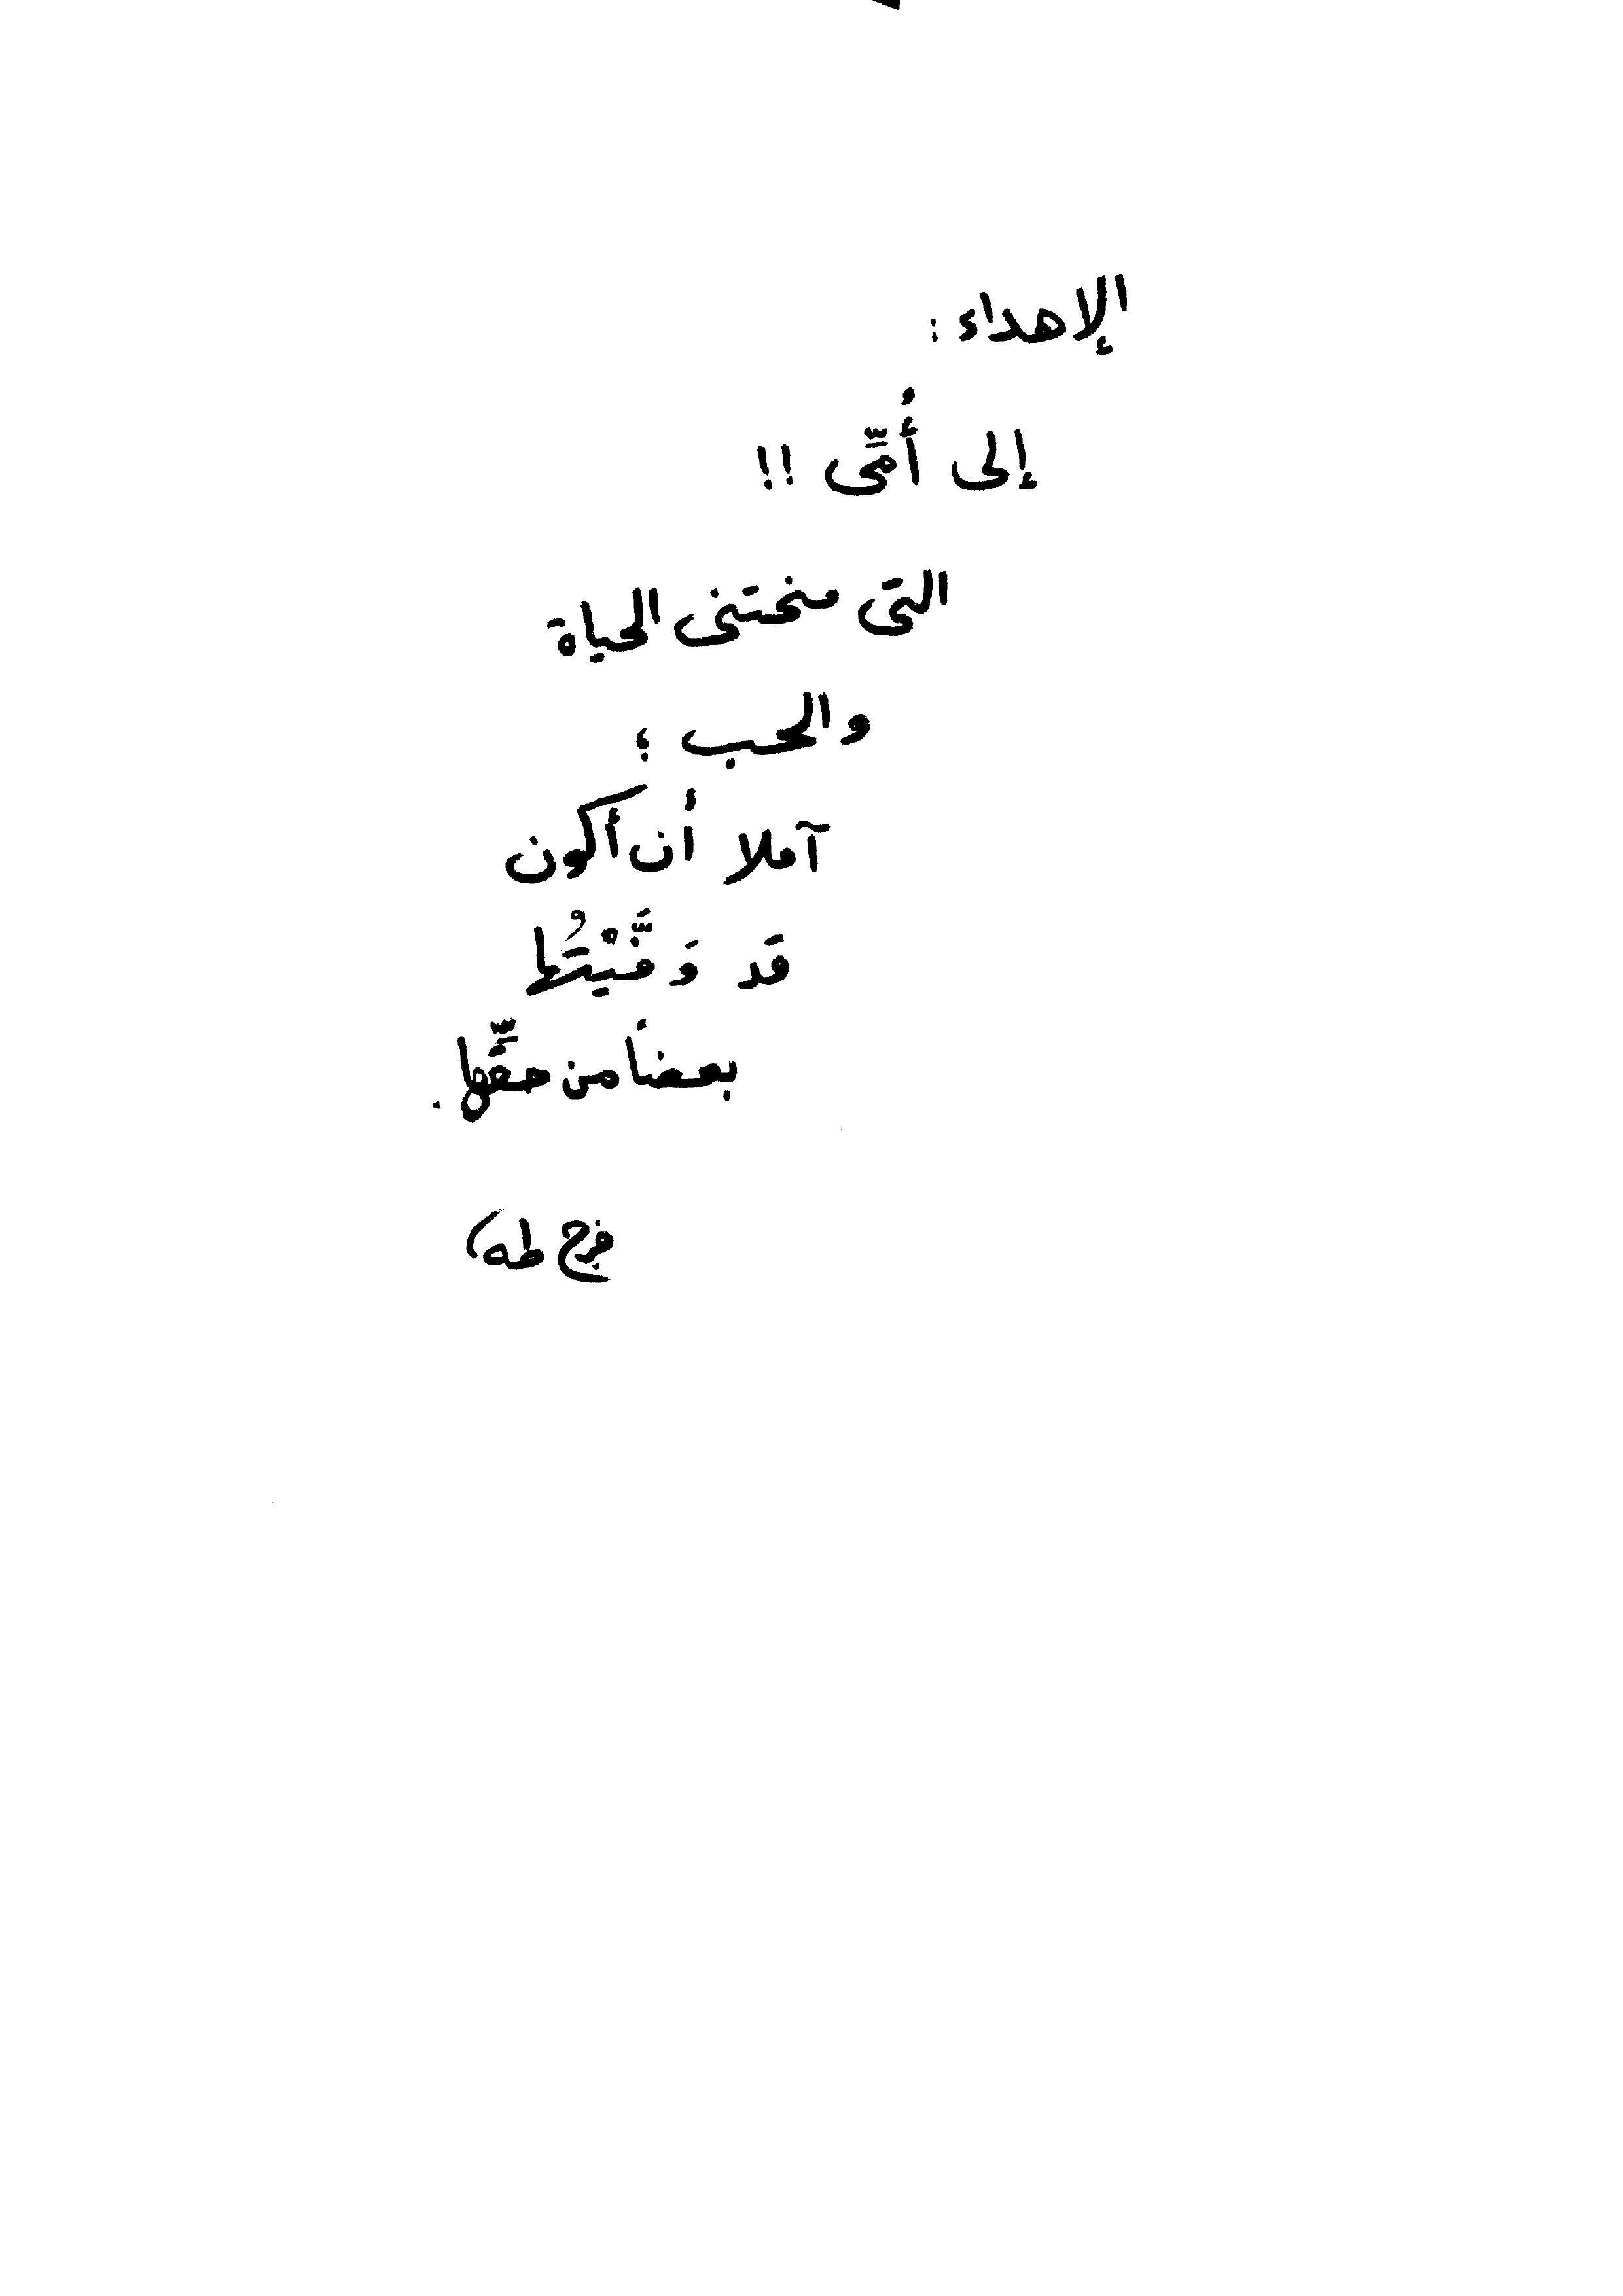 الإهداء :
إلى أُمِّى !!
التى منحتنى الحياة
والحب ؛
آملا أن أكون
قَد وَفَّيْتُها
بعضاً من حقِّها .
فرج طه